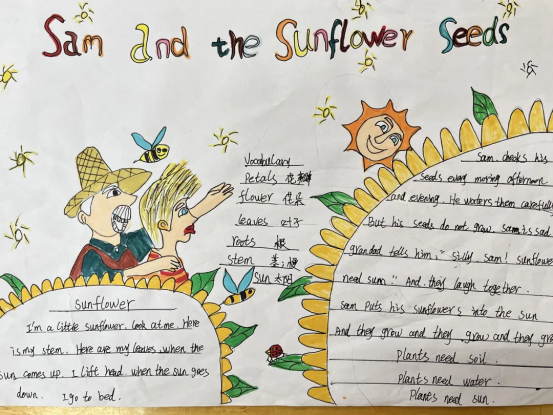 Sam and the Sunflower Seeds
Vocabulary
Petals 花瓣
flower 花
leaves 叶子
roots 根
stem 茎
Sun 太阳
Sunflower
I'm a little sunflower. Look at me. Here
is my stem. Here are my leaves. when the
sun comes up. I lift head. when the sun goes
down. I go to bed.
Sam. checks his
seeds every morning afternoon
and evening. He waters them carefully
But his seeds do not grow. Sam is sad
grandad tells him, "silly, sam! sunflower
need sun." And they laugh together.
Sam puts his sunflowers into the sun
And they grow and they grow and they gr
Plants need soil.
Plants need water.
Plants need sun.